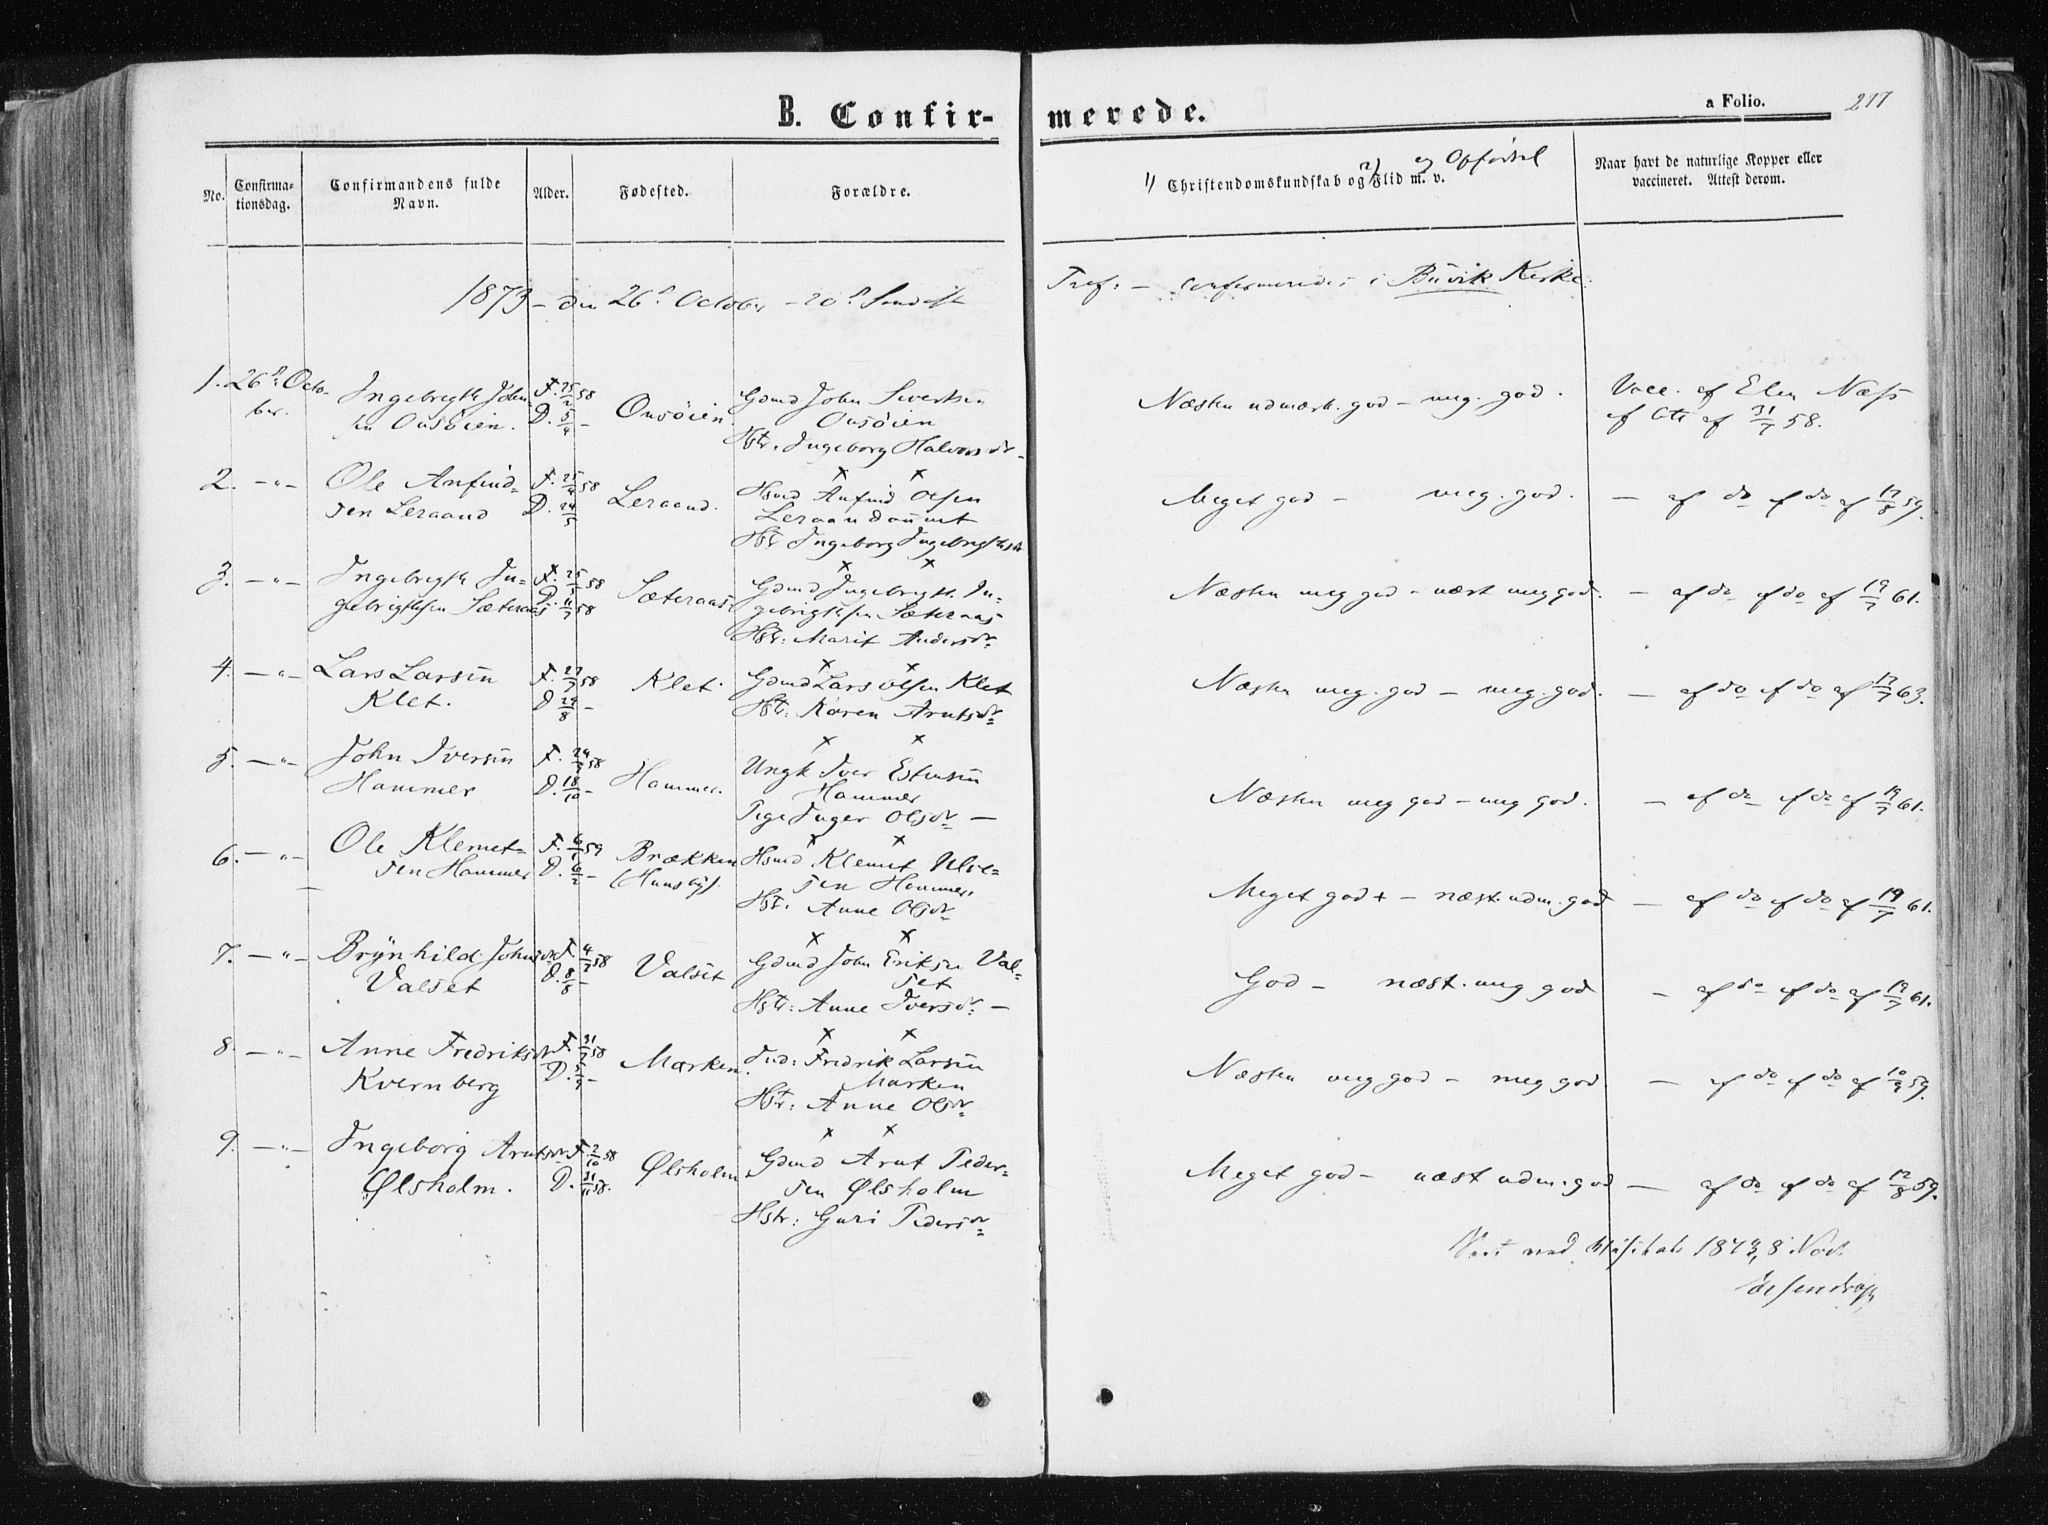 B. Confir- merede.
a Folio. 217
No. Confirma-tionsdag. Confirmandens fulde Navn. Alder. Fødested. Forældre. 1) Christendomskundskab og 2) Flid m. v. og Opførsel Naar havt de naturlige Kopper eller vaccineret. Attest derom.
1873 – den 26de October – 20de S. Tref: – confirmeredes i Büvik Kirke.
1. 26de Octo- Ingebrigt John- F. 25/2 58 Onsöien. Gdmd John Sivertsen Næsten udmærk. god – meg. god. Vacc. af Elen Næss
ber. sen Onsöien. D. 5/4 – Onsöien f Att af 31/7 58.
Hstr. Ingeborg Halvorsdr –
2. –"– Ole Anfind- F. 25/4 58 Leraand. Hsmd Anfind Olsen Meget god – meg. god. – af do f do af 17/8 59.
sen Leraand D. 24/5 Leraandaunet
Hst Ingeborg Ingebrigtsdr
3. –"– Ingebrigt In- F. 25/5 58 Sæteraas. Gdmd Ingebrigt In- Næsten meg god – næst meg god. – af do f do af 19/7 61.
gebrigtsen Sæteraas D. 11/7 58 gebrigtsen Sæteraas
Hstr: Marit Andersdr.
4. –"– Lars Larsen F. 27/7 58 Klet. Gdmd Lars Olsen Klet Næsten meg. god – meg. god. – af do f do af 17/7 63.
Klet. D 29/8 – Hst: Karen Arntsdr
5. –"– John Iversen F. 24/9 58 Hammer. Ungk Iver Estensen Næsten meg god – meg god. – af do f do af 19/7 61.
Hammer D. 18/10 – Hammer
Pige Inger Olsdr –
6. –"– Ole Klemet- F. 6/1 59 Brækken Hsmd Klemet Ules- Meget god + – næst. udm. god – af do f do af 19/7 61.
sen Hammer D. 6/2 – (Huusby). sen Hammer.
Hst. Anne Olsdr
7. –"– Brynhild Johnsdr F. 4/7 58 Valset Gdmd John Eriksen Val- God – næst. meg god – af do f do af 19/7 61.
Valset D. 8/8 – set
Hstr: Anne Iversdr –
8. –"– Anne Fredriksdr F. 31/7 58 Marken. Ind: Fredrik Larsen Næsten meg god – meg god – af do f do af 10/9 59.
Kvernberg D. 5/9 – Marken
Hstr: Anne Olsdr
9. –"– Ingeborg Arntsdr F. 2/10 58 Ølsholm Gdmd Arnt Peder- Meget god – næst udm. god – af do f do af 12/8 59.
Ølsholm. D. 21/11 58. sen Ølsholm
Hstr: Guri Pedersdr
1873, 8 Nov